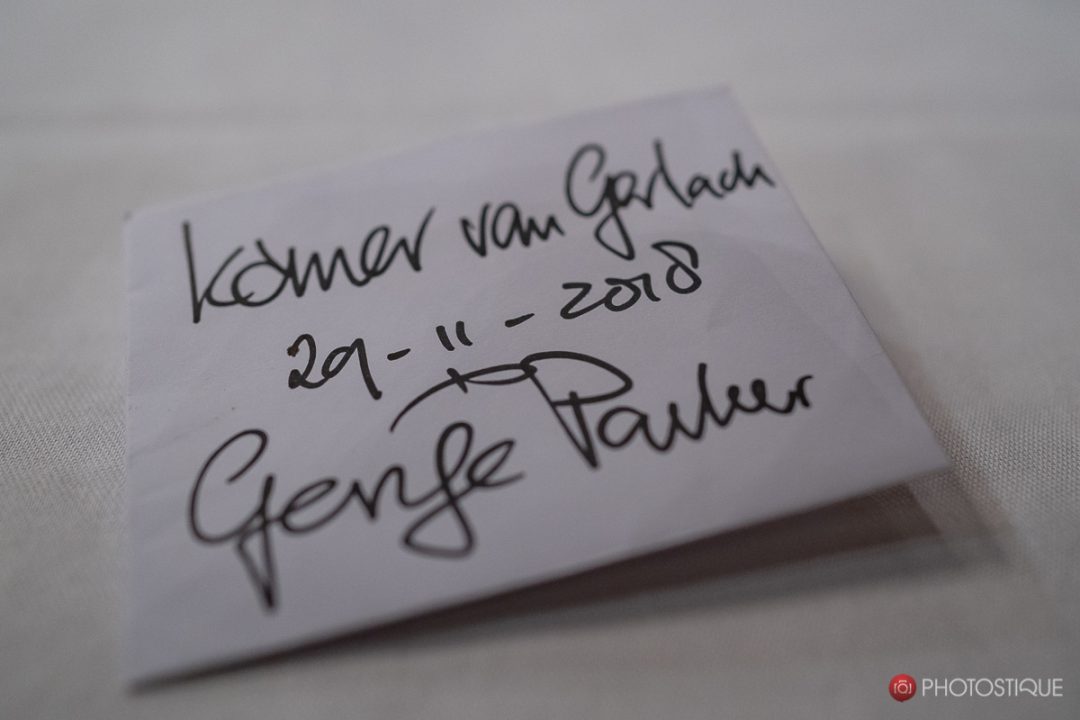 Kömer van Gerlach
29-11-2018
George Parker
PHOTOSTIQUE